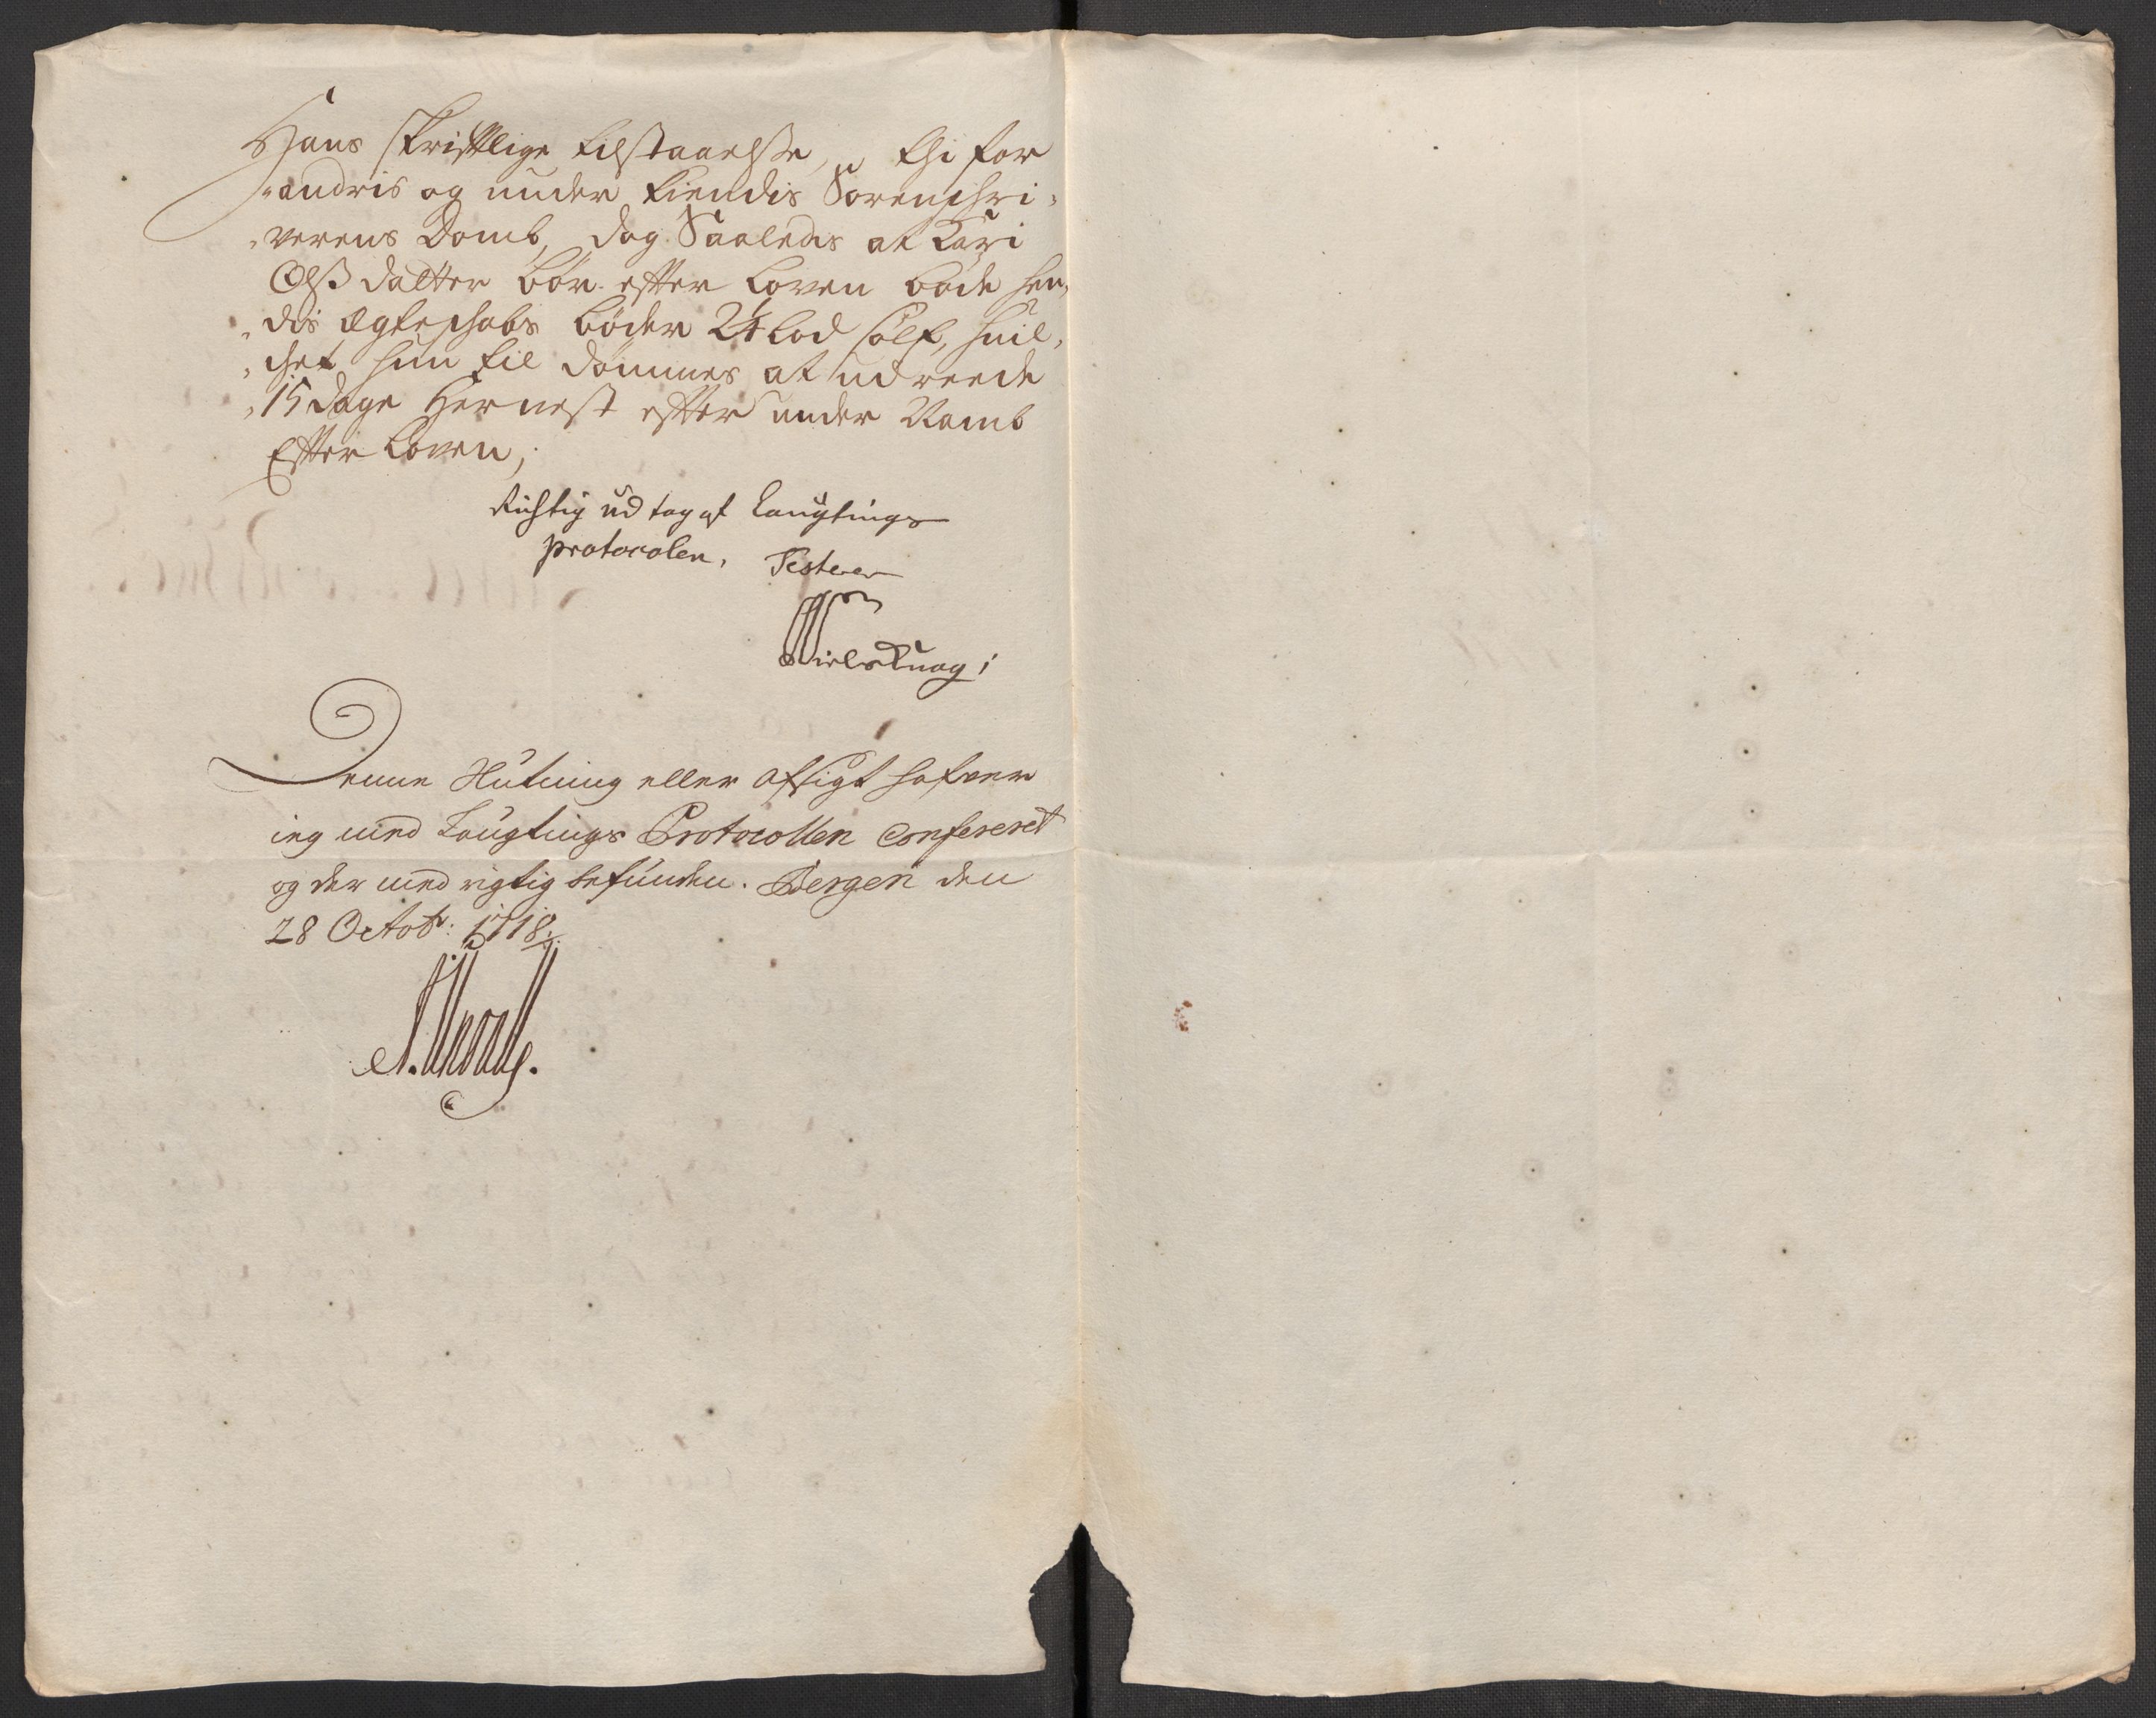 Hans skriftlige tilstaaelse, thi for
„andris og under kiendis Sorenschri„
„verens Domb, dog Saaledes at Kari
Olsdatter bør efter Loven bøde hen„
„dis Egteschabs bøder 2¼ Lod sølf, huil„
„chet hun til dømmes at udreede
„15 dage Hernest efter under Namb
Efter Loven,
Richtig udtog af Laugtings
protocolen, Testerer
Niels Knag
Denne Slutning eller afsigt hafver
ieg med Laugtings Protocollen confereret
og der med rigtig befunden. Bergen den
28 Octobr: 1718